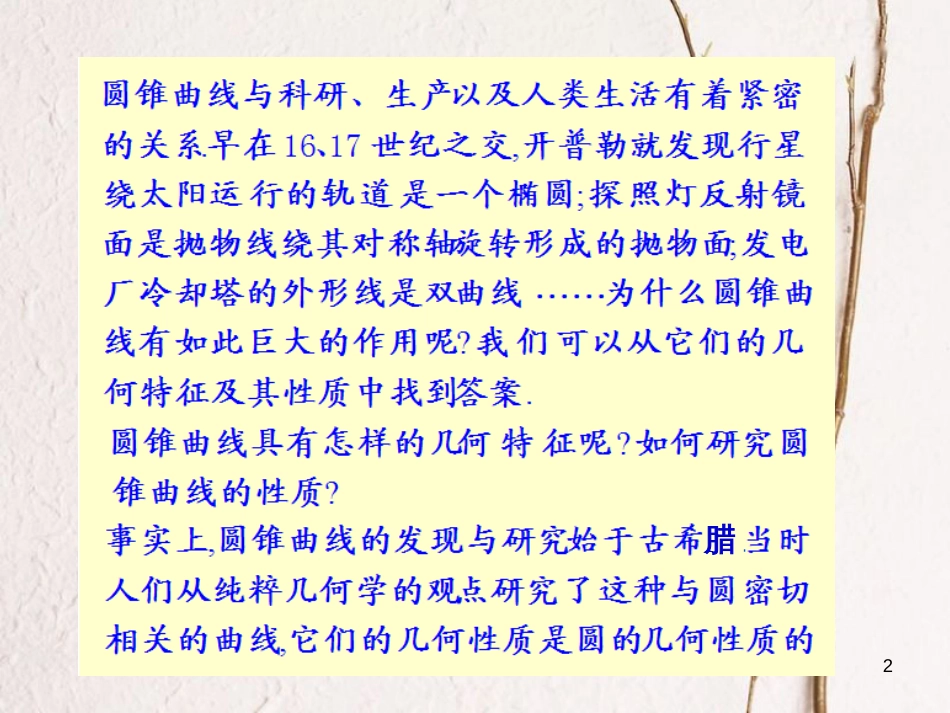 圆锥曲线与科研、生产以及人类生活有着紧密
的关系.早在16、17世纪之交,开普勒就发现行星
绕太阳运行的轨道是一个椭圆;探照灯反射镜
面是抛物线绕其对称轴旋转形成的抛物面;发电
厂冷却塔的外形线是双曲线……为什么圆锥曲
线有如此巨大的作用呢?我们可以从它们的几
何特征及其性质中找到答案.
圆锥曲线具有怎样的几何特征呢?如何研究圆
锥曲线的性质?
事实上,圆锥曲线的发现与研究始于古希腊.当时
人们从纯粹几何学的观点研究了这种与圆密切
相关的曲线,它们的几何性质是圆的几何性质的
2